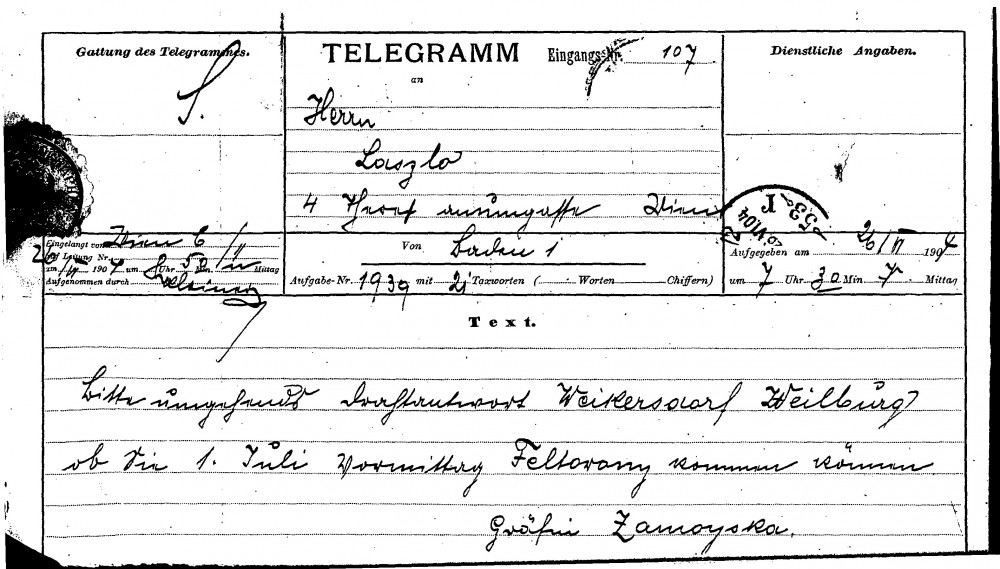 Gattung des Telegrammes.
S.
TELEGRAMM
an
Eingangs-Nr. 107
Dienstliche Angaben.
Herrn
Laszlo
4 Theresianumgasse Wien
Eingelangt von Wien 6
auf Leitung Nr.
am 190 um 8 Uhr 50 Min. Mittag
Aufgenommen durch
Von Baden 1
Aufgabe-Nr. 1939 mit 21 Taxworten ( Worten Chiffern)
Aufgegeben am 26/VI 1904
um 7 Uhr 30 Min. Mittag
Text.
Bitte umgehends Drahtantwort Weikersdorf Weilburg
ob Sie 1. Juli Vormittag Feltorony kommen können
Gräfin Zamoyska.